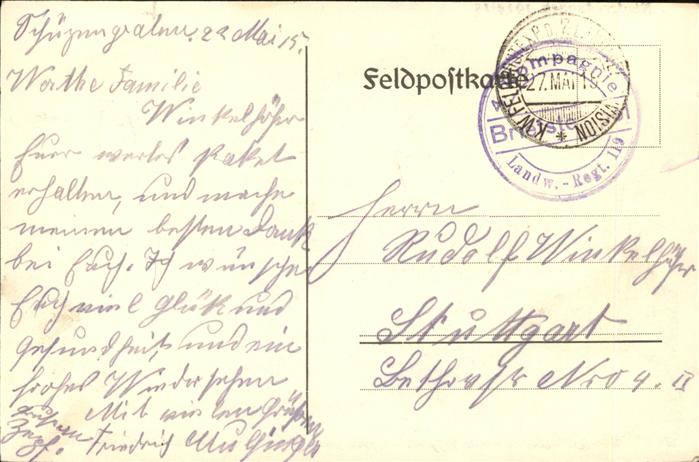 Schüzengraben. 22 Mai 15.
Werthe Familie
Winkelhöfer
Euer wertes Paket
erhalten, und mache
meinen besten Dank
bei Euch. Ich wünsche
Euch viel Glük und
gesundheit, und ein
frohes Wiedersehen
Mit vielen Grüßen
Friedrich
Feldpostkarte
27. MAI 15
Kompagnie
Landw. - Regt. 119
Herrn
Rudolf Winkelhöfer
Stuttgart
Nro 4. II